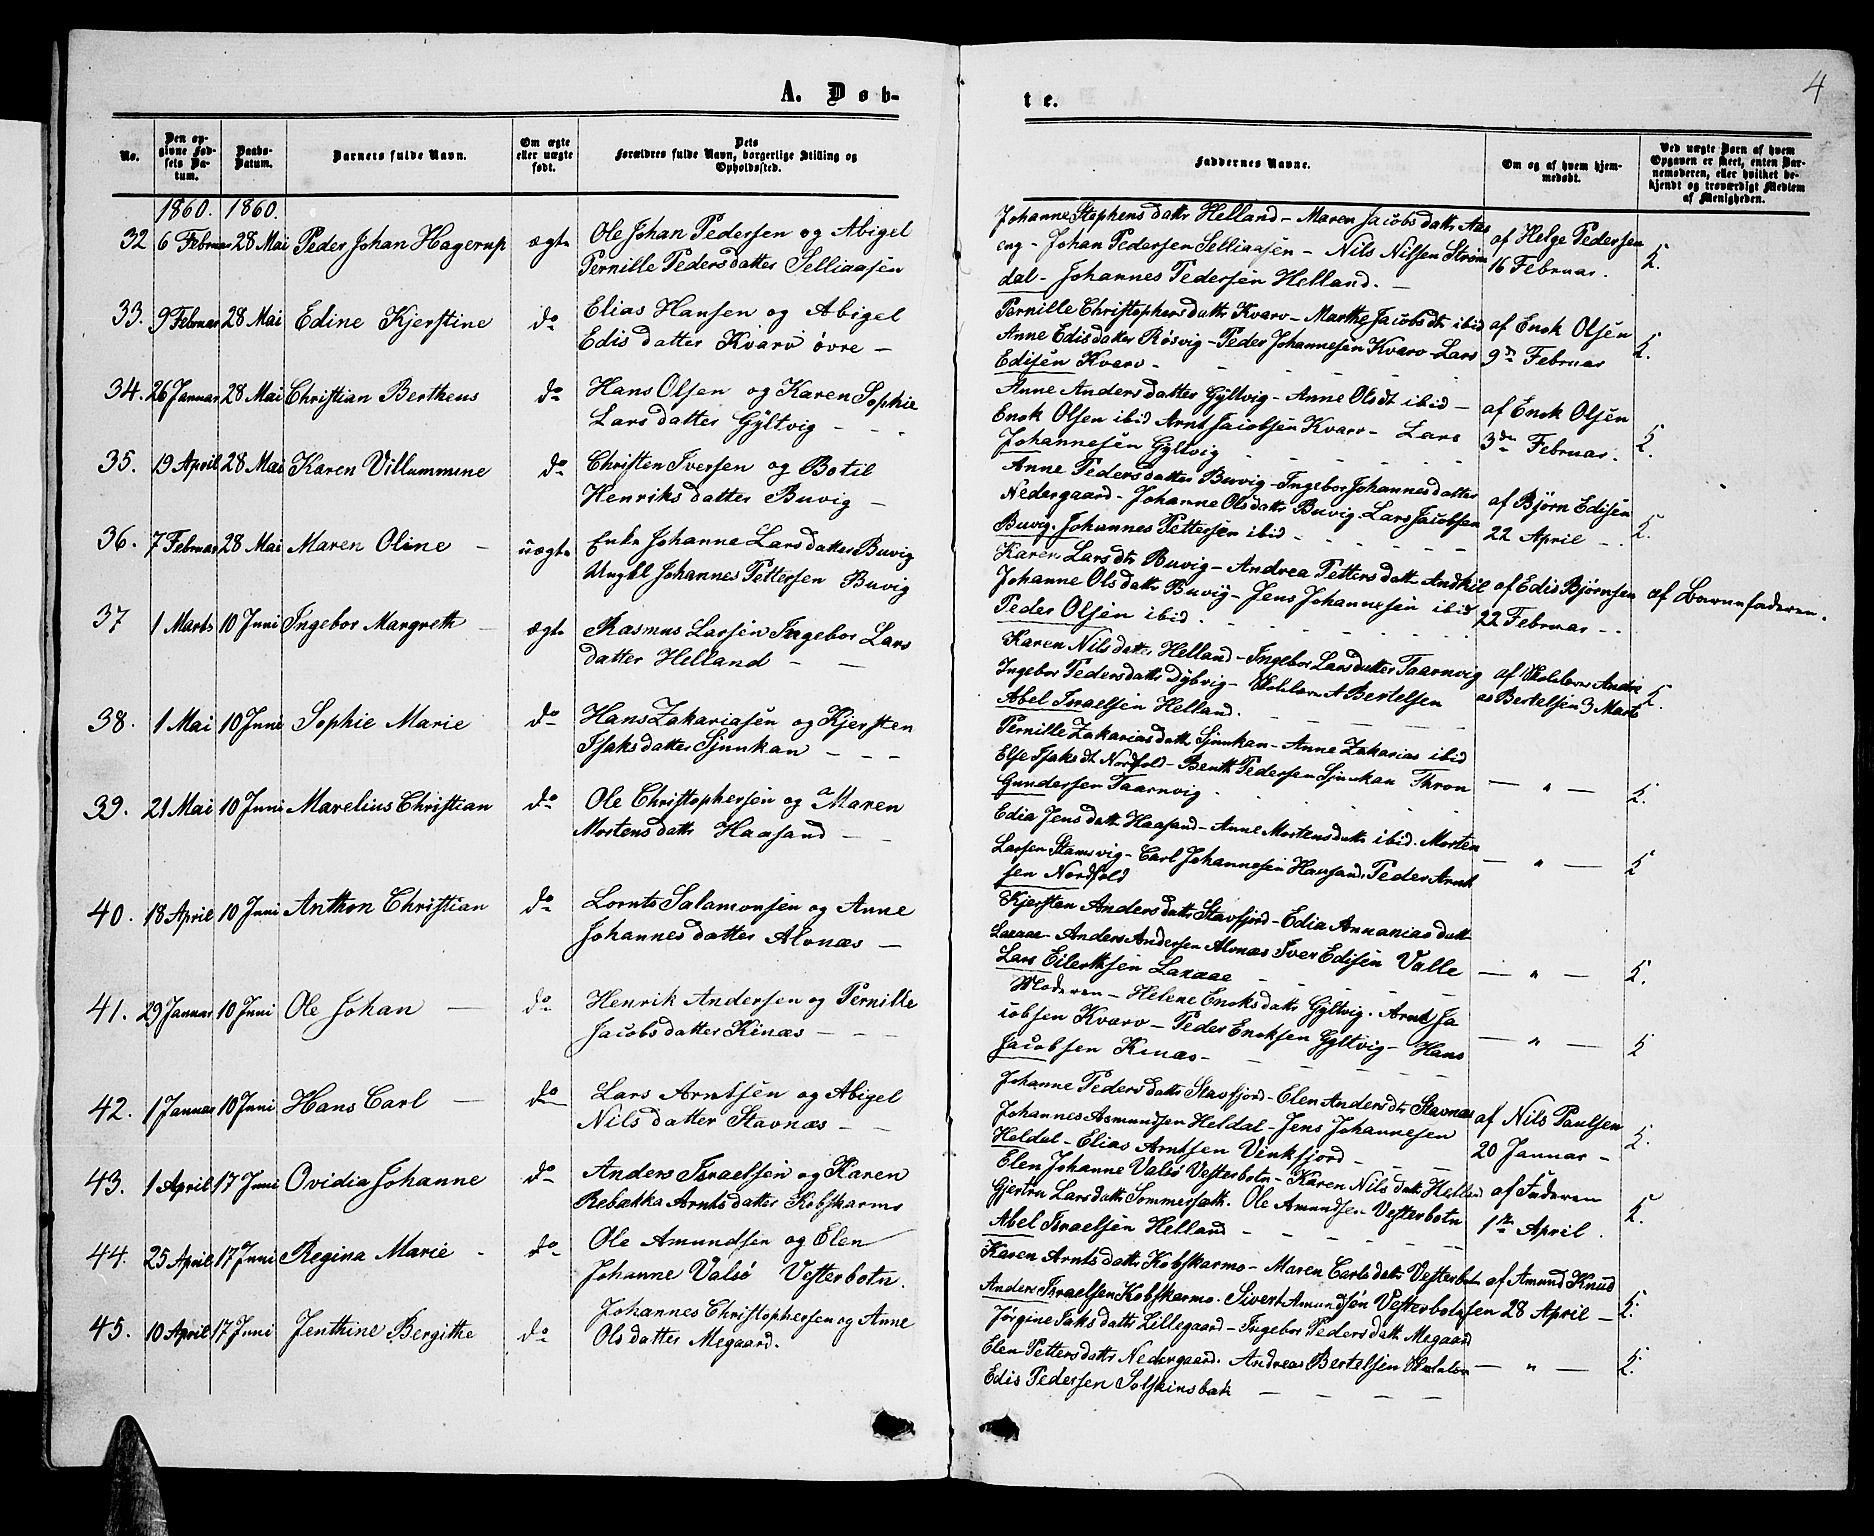 4
A. Døb-
te.
No.
Den opgivne Fødsels Datum.
Daabs-Datum.
Barnets fulde Navn.
Om ægte eller uægte født.
Dets Forældres fulde Navn, borgerlige Stilling og Opholdssted.
Faddernes Navne.
Om og af hvem hjemmedøbt.
Ved uægte Børn af hvem Opgaven er skeet, enten Barnemoderen, eller hvilket bekjendt og troværdigt Medlem af Menigheden.
1860. 1860.
32 6 Februar 28 Mai Peder Johan Hagerup ægte Ole Johan Pedersen og Abigel
Pernille Pedersdatter Selliaasen
Johanne Stephensdattr Helland - Maren Jacobsdattr Aas
eng - Johan Pedersen Selliaasen - Nils Nilsen Strøm
dal - Johannes Pedersen Helland. -
af Helge Pedersen
16 Februar.
33. 9 Februar 28 Mai Edine Kjerstine do Elias Hansen og Abigel
Edisdatter Kvarv øvre -
Pernille Christophersdattr Kvarv - Marthe Jacobsdtr ibid
Anne Edisdatter Røsvig - Peder Johannesen Kvarv - Lars
Edisen Kvarv -
af Enok Olsen
9de Februar
34. 26 Januar 28 Mai Christian Bertheus do Hans Olsen og Karen Sophie
Larsdatter Gyltvig - - -
Anne Andersdatter Gyltvig - Anne Olsdt ibid -
Enok Olsen ibid Arnt Jacobsen Kvarv - Lars
Johannesen Gyltvig
af Enok Olsen
3de Februar.
35. 19 April 28 Mai Karen Villummine do Christen Iversen og Botil
Henriksdatter Buvig -
Anne Pedersdatter Buvig - Ingebor Johannesdatter
Nedergaard - Johanne Olsdattr Buvig - Lars Jacobsen
Buvig. Johannes Pettersen ibid -
af Bjørn Edisen
22 April - -
36. 7 Februar 28 Mai Maren Oline - uægte Enke Johanne Larsdatter Buvig
Ungkl Johannes Pettersen Buvig
Karen Larsdtr Buvig - Andrea Pettersdattr Andkil
Johanne Olsdattr Buvig - Jens Johannesen ibid
Peder Olsen ibid.
af Edis Bjørnsen
22 Februar - -
af Barnefaderen.
37 1 Marts 10 Juni Ingebor Margreth - ægte Rasmus Larsen Ingebor Lars
datter Helland - -
Karen Nilsdattr Helland - Ingebor Larsdatter Taarnvig
Ingebor Pedersdattr Dybvig - A Bertelsen
Abel Israelsen Helland.
af Andre
as Bertelsen 3 Marts
38. 1 Mai 10 Juni Sophie Marie do Hans Zakariasen og Kjersten
Isaksdatter Sjunkan - - -
Pernille Zakariasdattr Sjunkan - Anne Zakarias ibid
Else Isaksdt Nordfold - Bentt Pedersen Sjunkan Thron
Gundersen Taarnvig
39. 21 Mai 10 Juni Marelius Christian do Ole Christophersen og Maren
Mortensdattr Haasand - -
Edia Jensdattr Haasand - Anne Mortensdattr ibid. Morten
Larsen Stamsvig - Carl Johannesen Haasand, Peder Arnt
sen Nordfold
40. 18 April 10 Juni Anthon Christian do Lornts Salamonsen og Anne
Johannesdatter Alvnæs -
Kjersten Andersdattr Stavfjord - Edia Annaniasdattr
Laxaae - Anders Andersen Alvnæs Iver Edisen Valle
Lars Eilertsen Laxaae -
41. 29 Januar 10 Juni Ole Johan - do Henrik Andersen og Pernille
Jacobsdatter Kinæs - - -
Moderen - Helene Enoksdattr Gyltvig. Arnt Ja
cobsen Kvarv - Peder Enoksen Gyltvig - Hans
Jacobsen Kinæs -
42. 1 Januar 10 Juni Hans Carl - do Lars Arntsen og Abigel
Nilsdatter Stavnæs - -
Johanne Pedersdattr Stavfjord - Elen Andersdtr Stavnæs
Johannes Asmundsen Heldal - Jens Johannesen
Heldal - Elias Arntsen Vinkfjord -
af Nils Paulsen
20 Januar -
43. 1 April 17 Juni Ovidia Johanne do Anders Israelsen og Karen
Rebækka Arntsdatter Kobskarmo
Elen Johanne Valsø Vesterbotn - Karen Nilsdattr Helland
Gjertru Larsdattr Sommersæth. Ole Amundsen Vesterbotn
Abel Israelsen Helland -
af Faderen
1ste April.
44. 25 April 17 Juni Regina Marie - do Ole Amundsen og Elen
Johanne Valsø Vesterbotn.
Karen Arntsdattr Kobskarmo - Maren Carlsdattr Vesterbotn
Anders Israelsen Kobskarmo. Sivert Amundsen Vesterbotn
af Amund Knud
sen 28 April -
45. 10 April 17 Juni Jenthine Bergithe do Johannes Christophersen og Anne
Olsdatter Megaard.
Jørgine Isaksdattr Lillegaard - Ingebor Pedersdattr Megaard
Elen Pettersdattr Nedergaard. Andreas Bertelsen
Edis Pedersen Solskinsbak